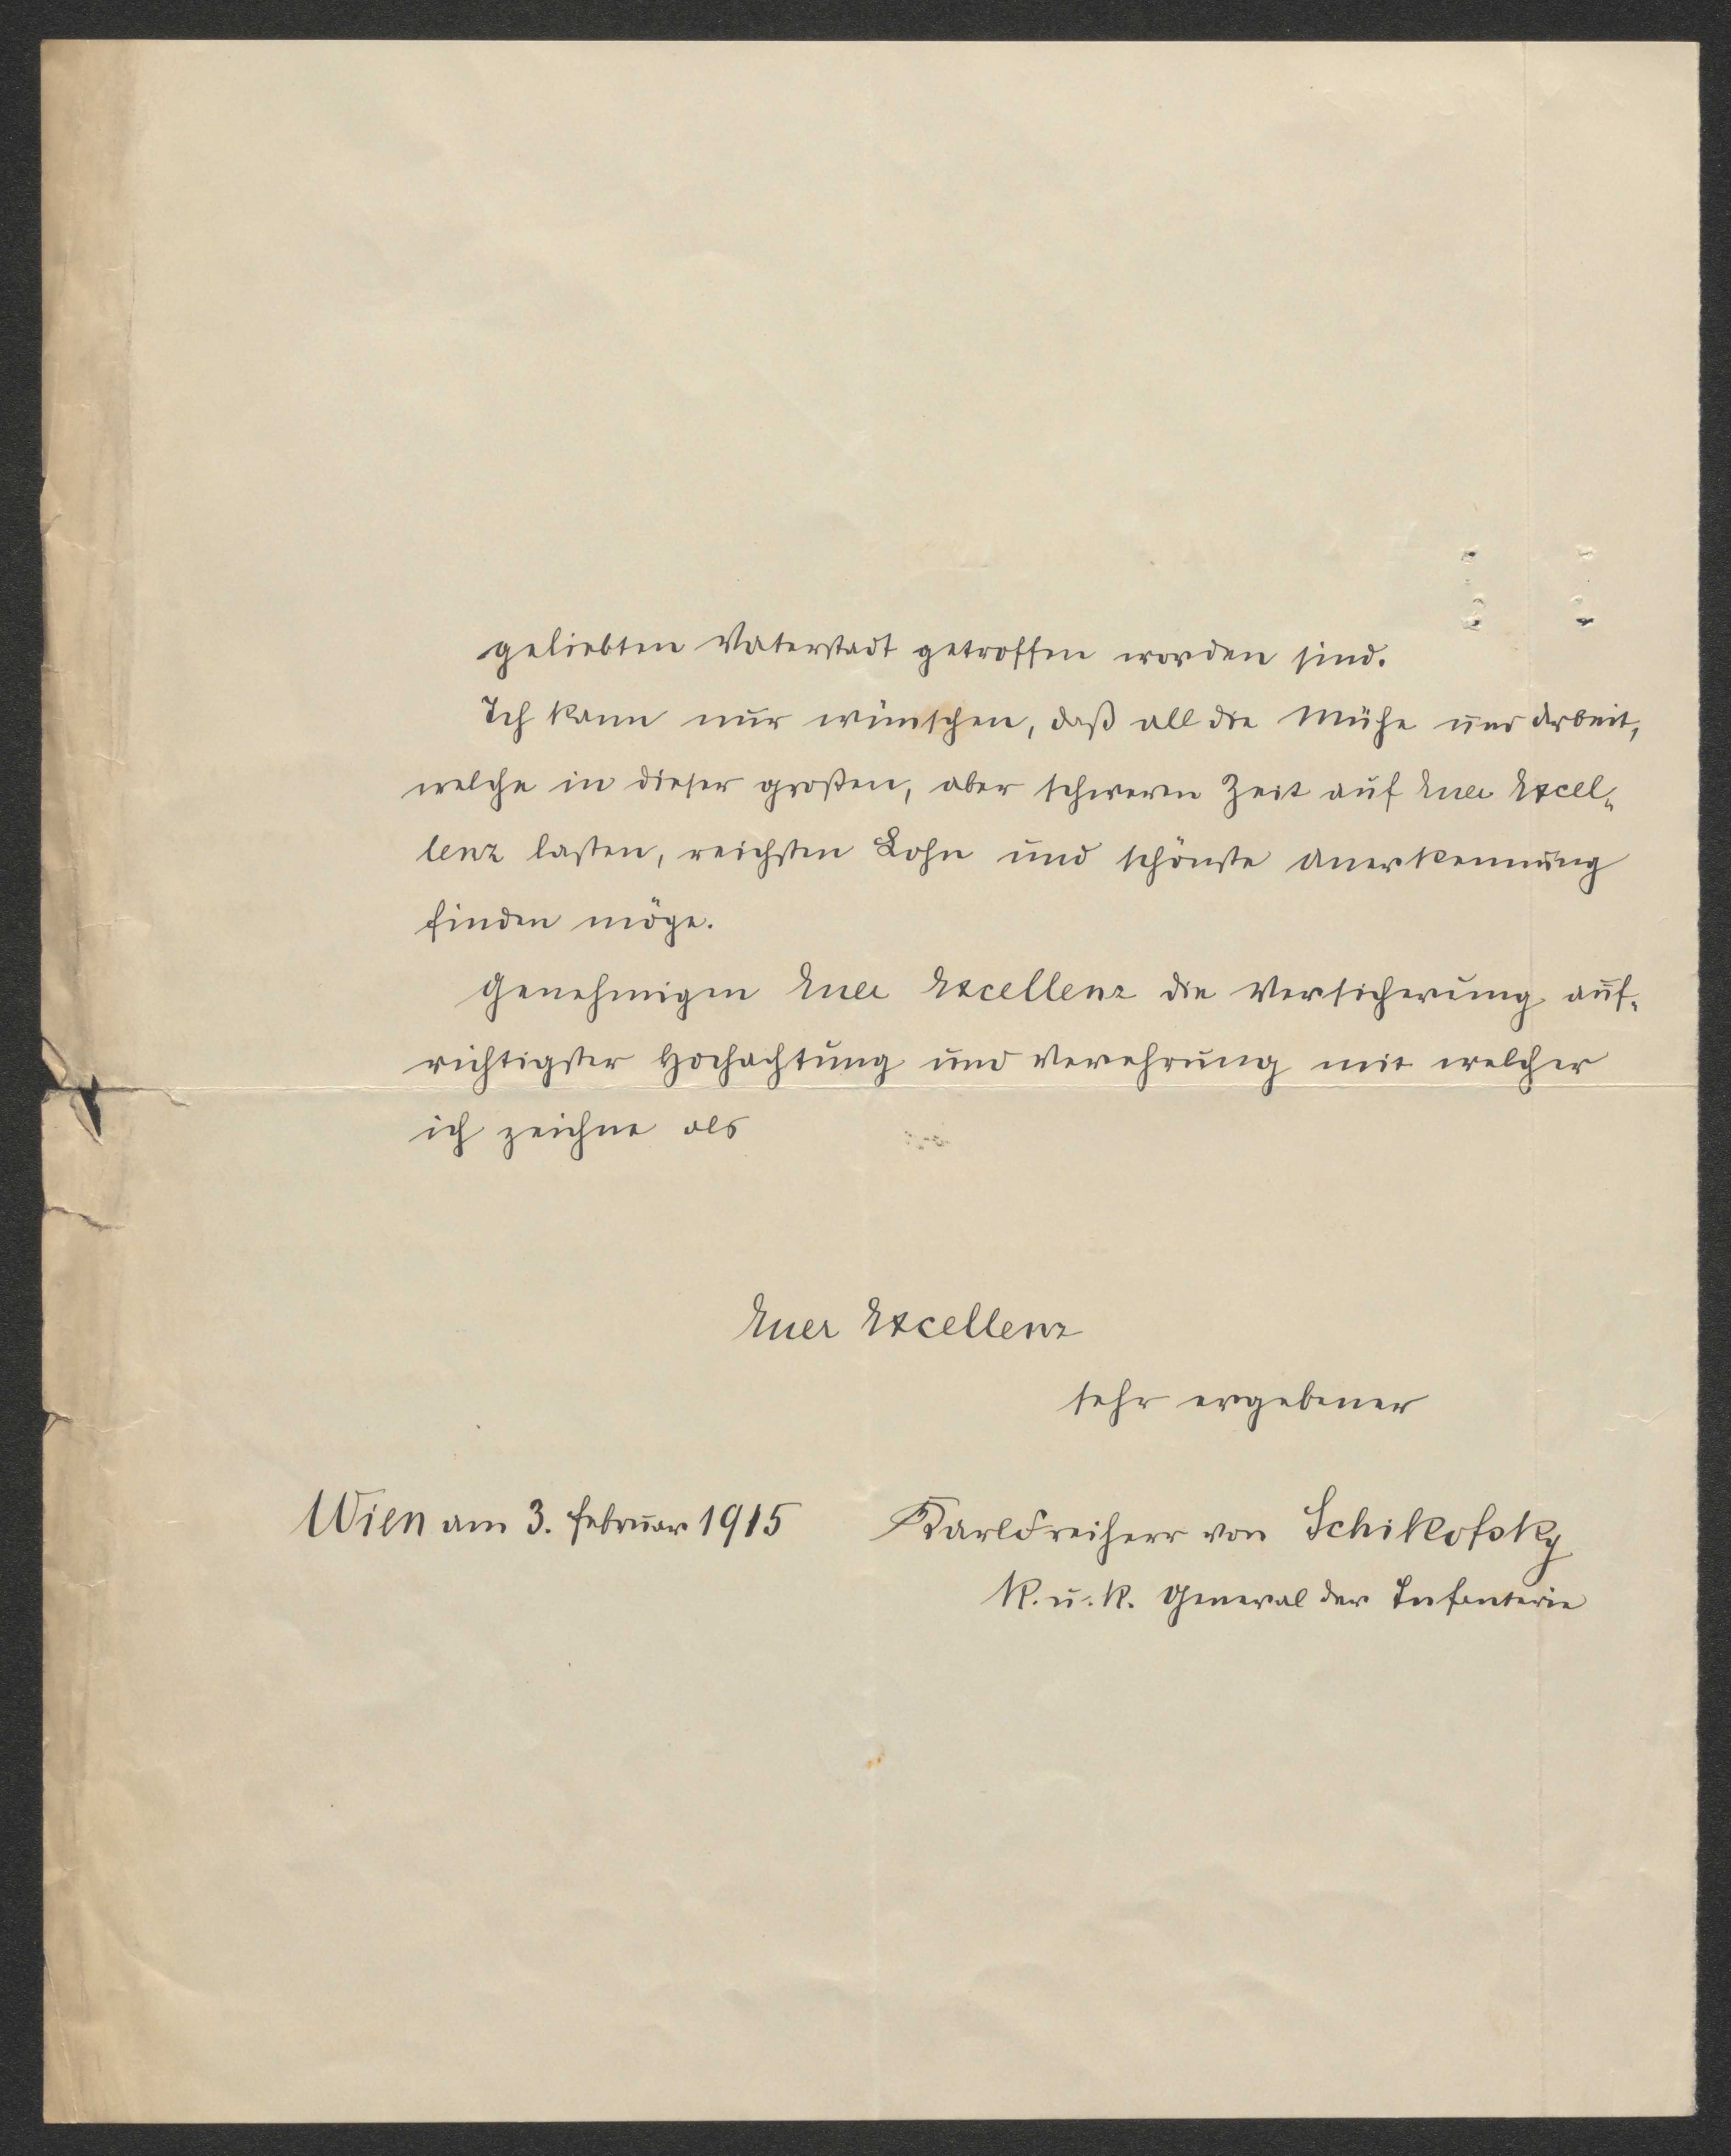 geliebten Vaterstadt getroffen worden sind.
Ich kann nur wünschen, daß all die Mühe und Arbeit,
welche in dieser großen, aber schweren Zeit auf Euer Excel-
lenz lasten, reichsten Lohn und schönste Anerkennung
finden möge.
Genehmigen Euer Excellenz die Versicherung auf-
richtigster Hochachtung und Verehrung mit welcher
ich zeichne als
Euer Excellenz
sehr ergebener
Wien am 3. Februar 1915 Karl Freiherr von Schikofsky
K. u. K. General der Infanterie